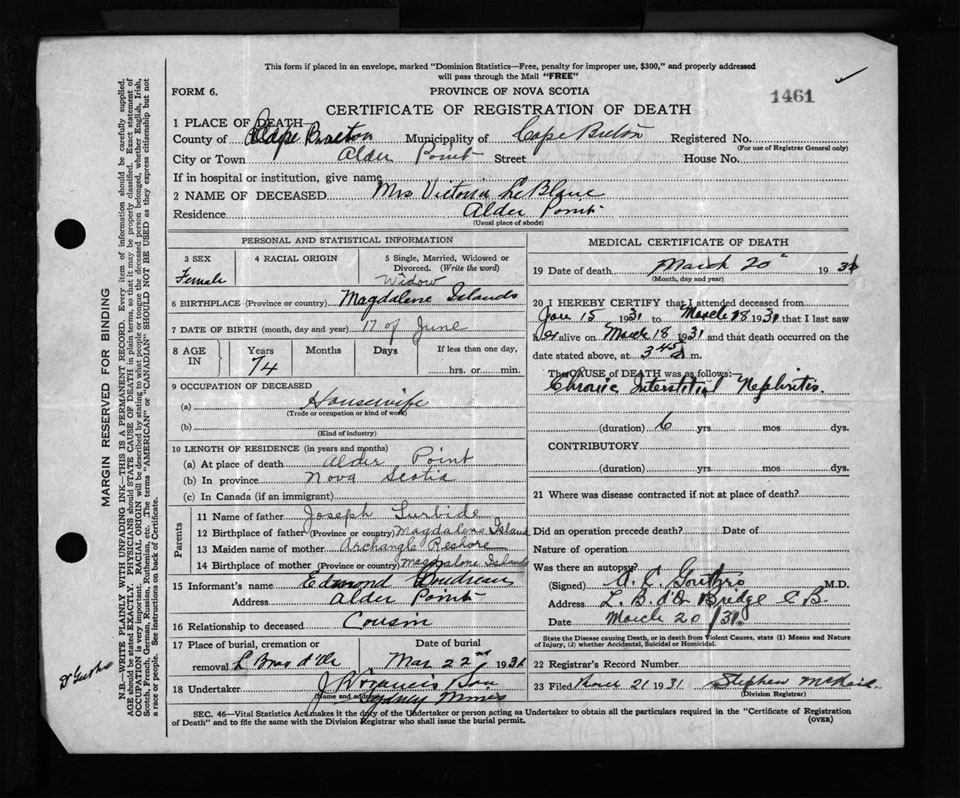 This form if placed in an envelope, marked "Dominion Statistics—Free, penalty for improper use, $300," and properly addressed
will pass through the Mail "FREE"
FORM 6.
PROVINCE OF NOVA SCOTIA
1461
CERTIFICATE OF REGISTRATION OF DEATH
1 PLACE OF DEATH—
County of Cape Breton Municipality of Cape Breton Registered No.
(For use of Registrar General only)
City or Town Alder Point Street House No.
If in hospital or institution, give name
2 NAME OF DECEASED Mrs Victoria LeBlanc
Residence Alder Point
(Usual place of abode)
PERSONAL AND STATISTICAL INFORMATION
3 SEX
Female
4 RACIAL ORIGIN
5 Single, Married, Widowed or
Divorced. (Write the word)
Widow
6 BIRTHPLACE (Province or country) Magdalene Islands
7 DATE OF BIRTH (month, day and year) 17 of June
8 AGE IN
Years Months Days If less than one day,
74
hrs. or min.
9 OCCUPATION OF DECEASED
(a) Housewife
(Trade or occupation or kind of work)
(b)
(Kind of industry)
10 LENGTH OF RESIDENCE (in years and months)
(a) At place of death Alder Point
(b) In province Nova Scotia
(c) In Canada (if an immigrant)
Parents
11 Name of father Joseph Turbide
12 Birthplace of father (Province or country) Magdalene Island
13 Maiden name of mother Archangle
14 Birthplace of mother (Province or country) Magdalene Islands
15 Informant's name Edmond Boudreau
Address Alder Point
16 Relationship to deceased Cousin
17 Place of burial, cremation or
removal L Bras d'Or
Date of burial
Mar 22nd 1931
18 Undertaker J. R. Francis Son
(Name and address) Sydney Mines
MEDICAL CERTIFICATE OF DEATH
19 Date of death March 20 1931
(Month, day and year)
20 I HEREBY CERTIFY that I attended deceased from
Jan 15 1931 to March 18 1931 that I last saw
her alive on March 18 1931 and that death occurred on
date stated above, at 3 45 a m.
The CAUSE of DEATH was as follows:—
Chronic Interstitial Nephritis
(duration) 6 yrs mos dys.
CONTRIBUTORY
(duration) yrs. mos. dys.
21 Where was disease contracted if not at place of death?
Did an operation precede death? Date of
Nature of operation
Was there an autopsy?
(Signed) A. C. Gouthro M.D.
Address L. B d'Or Bridge C B
Date March 20/31.
State the Disease causing Death, or in death from Violent Causes, state (1) Means and Nature
of Injury, (2) whether Accidental, Suicidal or Homicidal.
22 Registrar's Record Number
23 Filed 21 1931 Stephen
(Division Registrar)
SEC. 46—Vital Statistics Act makes it the duty of the Undertaker or person acting as Undertaker to obtain all the particulars required in the "Certificate of Registration
of Death" and to file the same with the Division Registrar who shall issue the burial permit. (OVER)
MARGIN RESERVED FOR BINDING
N.B.—WRITE PLAINLY WITH UNFADING INK—THIS IS A PERMANENT RECORD. Every item of information should be carefully supplied.
AGE should be stated EXACTLY. PHYSICIANS should STATE CAUSE OF DEATH in plain terms, so that it may be properly classified. Exact statement of
OCCUPATION is very important. RACIAL ORIGIN will be described by stating to what people or tongue the deceased person belonged, whether English, Irish,
Scotch, French, German, Russian, Ruthenian, etc. The terms "AMERICAN" or "CANADIAN" SHOULD NOT BE USED as they express citizenship but not
a race or people. See instructions on back of Certificate.